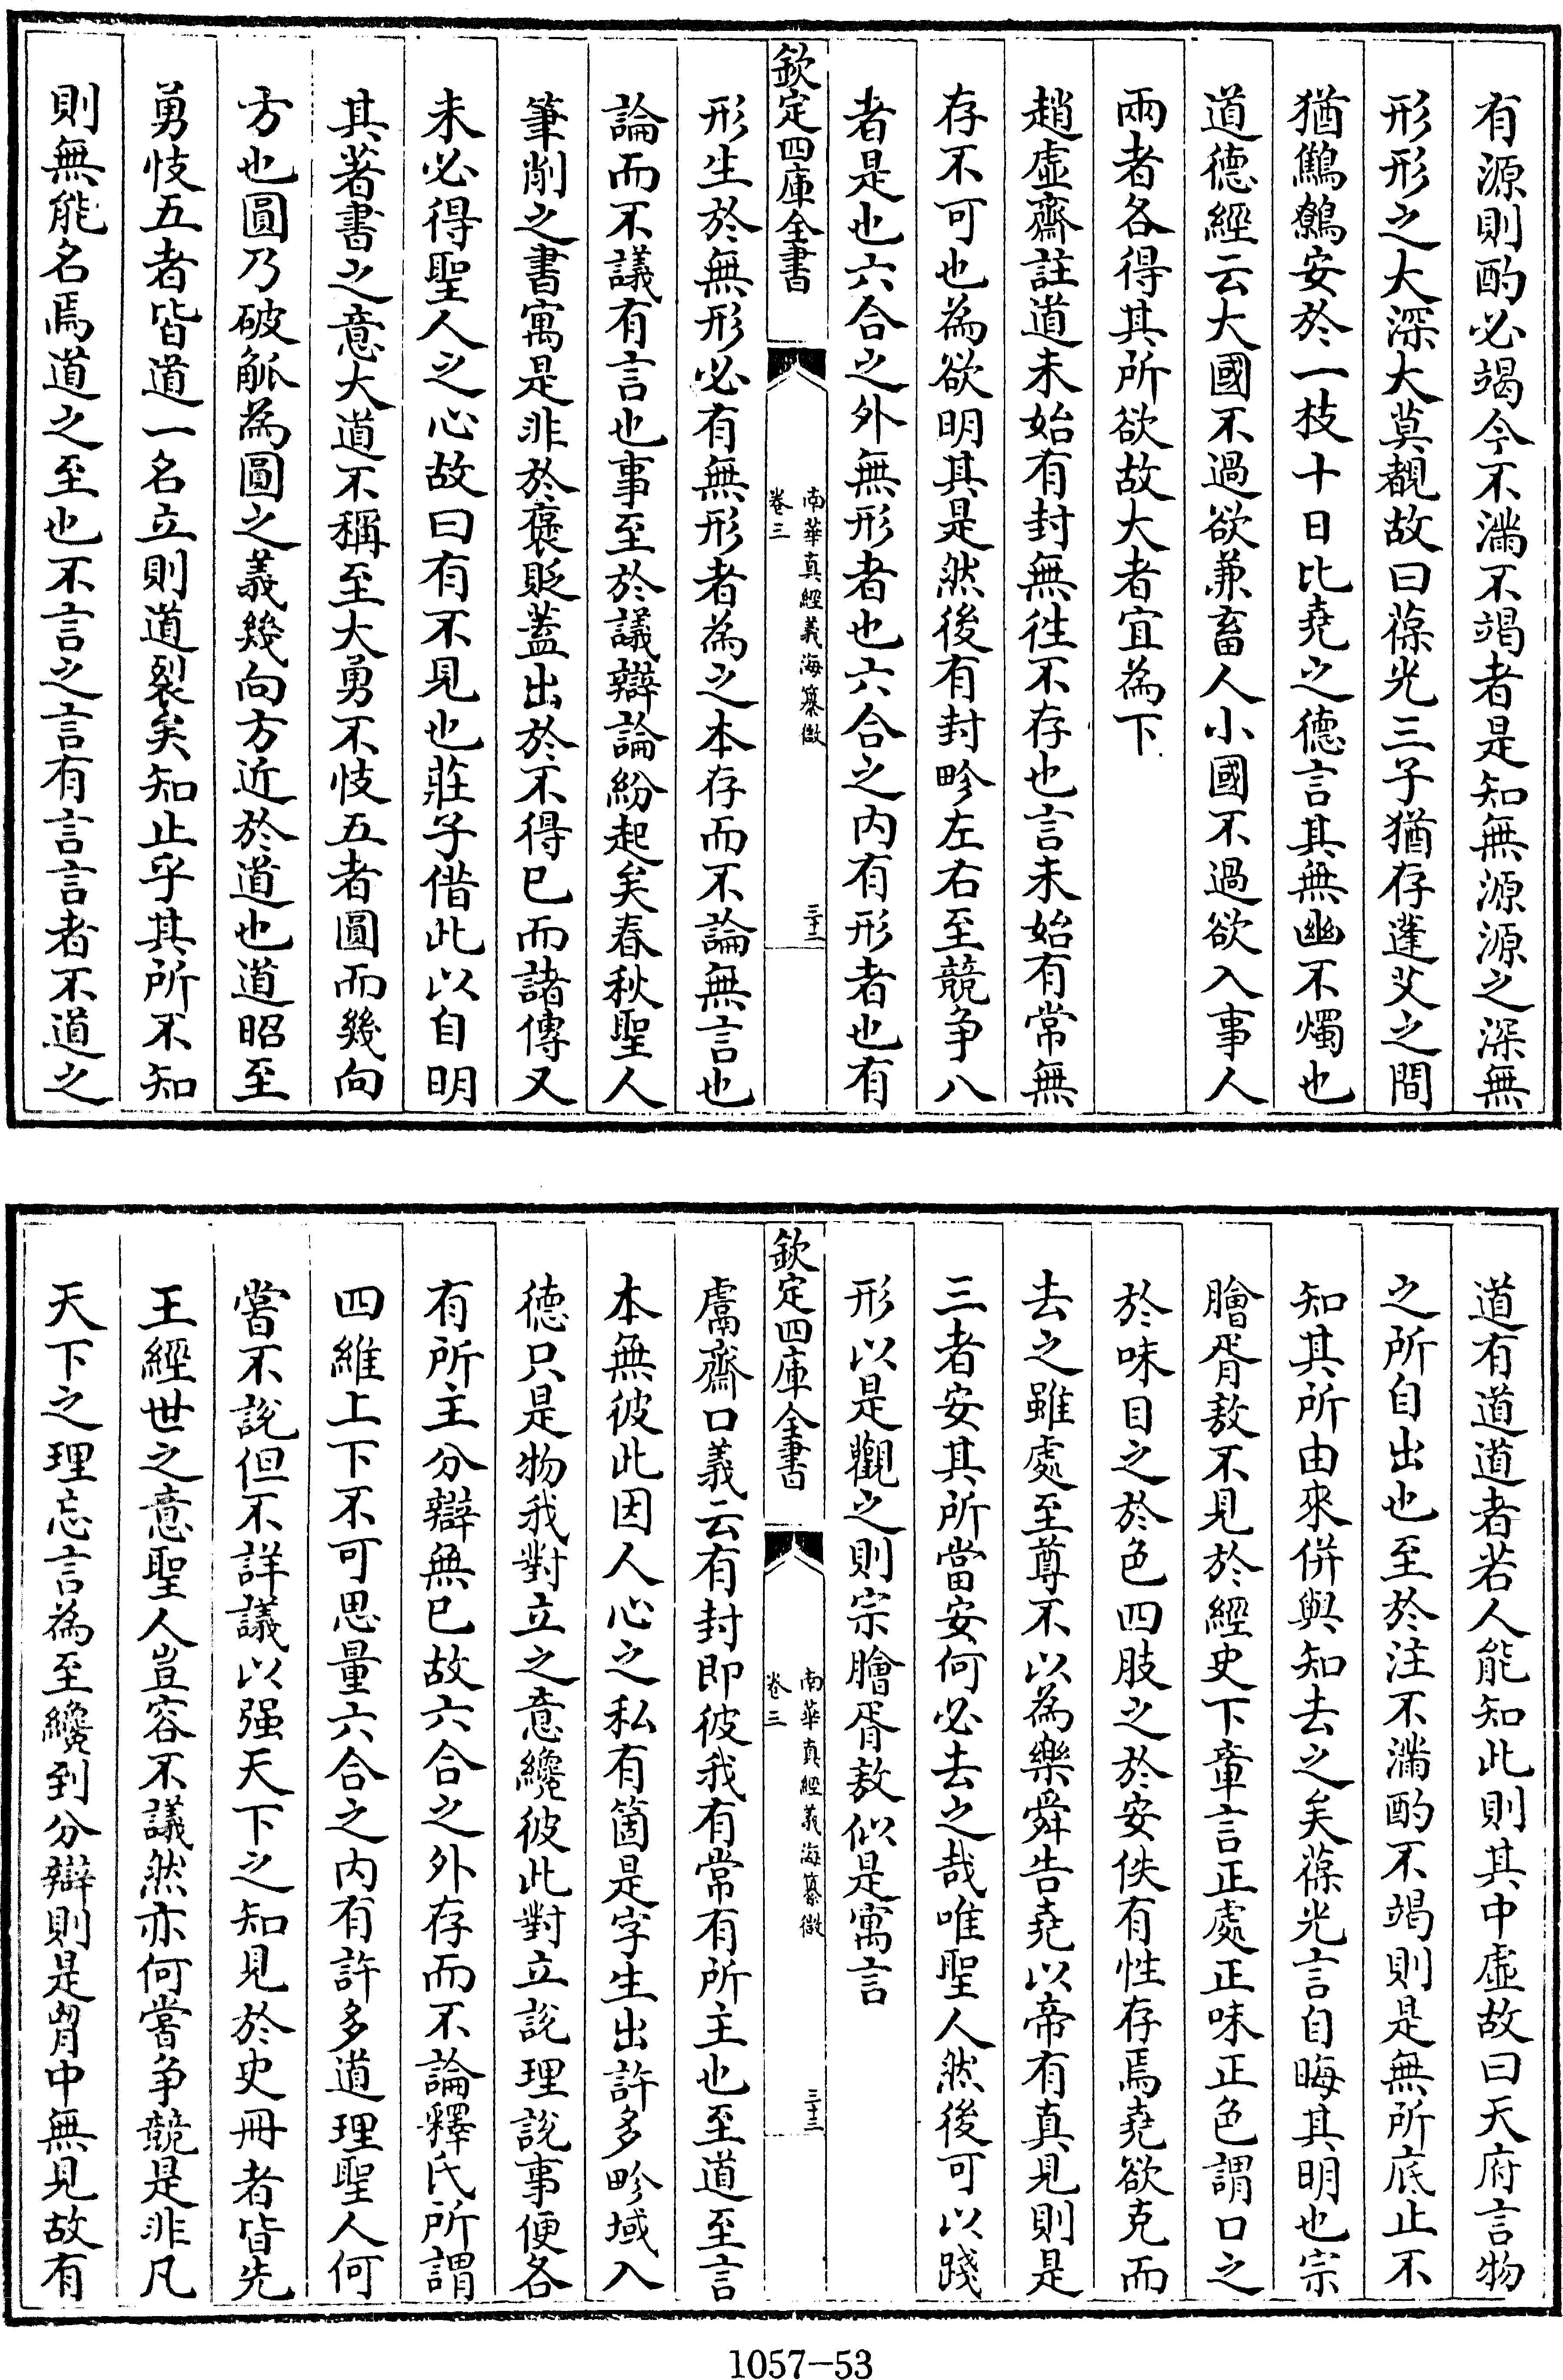 有源則酌必竭今不滿不竭者是知無源源之深無
形形之大深大莫覩故曰葆光三子猶存蓬艾之間
猶鷦鷯安於一枝十日比堯之德言其無幽不燭也
道德經云大國不過欲兼畜人小國不過欲入事人
兩者各得其所欲故大者宜為下
趙虛齋註道未始有封無徃不存也言未始有常無
存不可也為欲明其是然後有封畛左右至競争八
者是也六合之外無形者也六合之内有形者也有
欽定四庫全書
南華真經義海纂微
卷三
三十二
形生於無形必有無形者為之本存而不論無言也
論而不議有言也事至於議辯論紛起矣春秋聖人
筆削之書寓是非於褒貶蓋出於不得已而諸傳又
未必得聖人之心故曰有不見也莊子借此以自明
其著書之意大道不稱至大勇不忮五者圓而幾向
方也圓乃破觚為圓之義幾向方近於道也道昭至
勇忮五者皆道一名立則道裂矣知止乎其所不知
則無能名焉道之至也不言之言有言言者不道之
道有道道者若人能知此則其中虛故曰天府言物
之所自出也至於注不滿酌不竭則是無所底止不
知其所由來併與知去之矣葆光言自晦其明也宗
膾胥敖不見於經史下章言正處正味正色謂口之
於味目之於色四肢之於安佚有性存焉堯欲克而
去之雖處至尊不以為樂舜告堯以帝有真見則是
三者安其所當安何必去之哉唯聖人然後可以踐
形以是觀之則宗膾胥敖似是寓言
欽定四庫全書
南華真經義海纂微
卷三
三十三
鬳齋口義云有封即彼我有常有所主也至道至言
本無彼此因人心之私有箇是字生出許多畛域入
德只是物我對立之意纔彼此對立說理說事便各
有所主分辯無已故六合之外存而不論釋氏所謂
四維上下不可思量六合之内有許多道理聖人何
嘗不說但不詳議以强天下之知見於史冊者皆先
王經世之意聖人豈容不議然亦何嘗争競是非凡
天下之理忘言為至纔到分辯則是胷中無見故有
1057-53